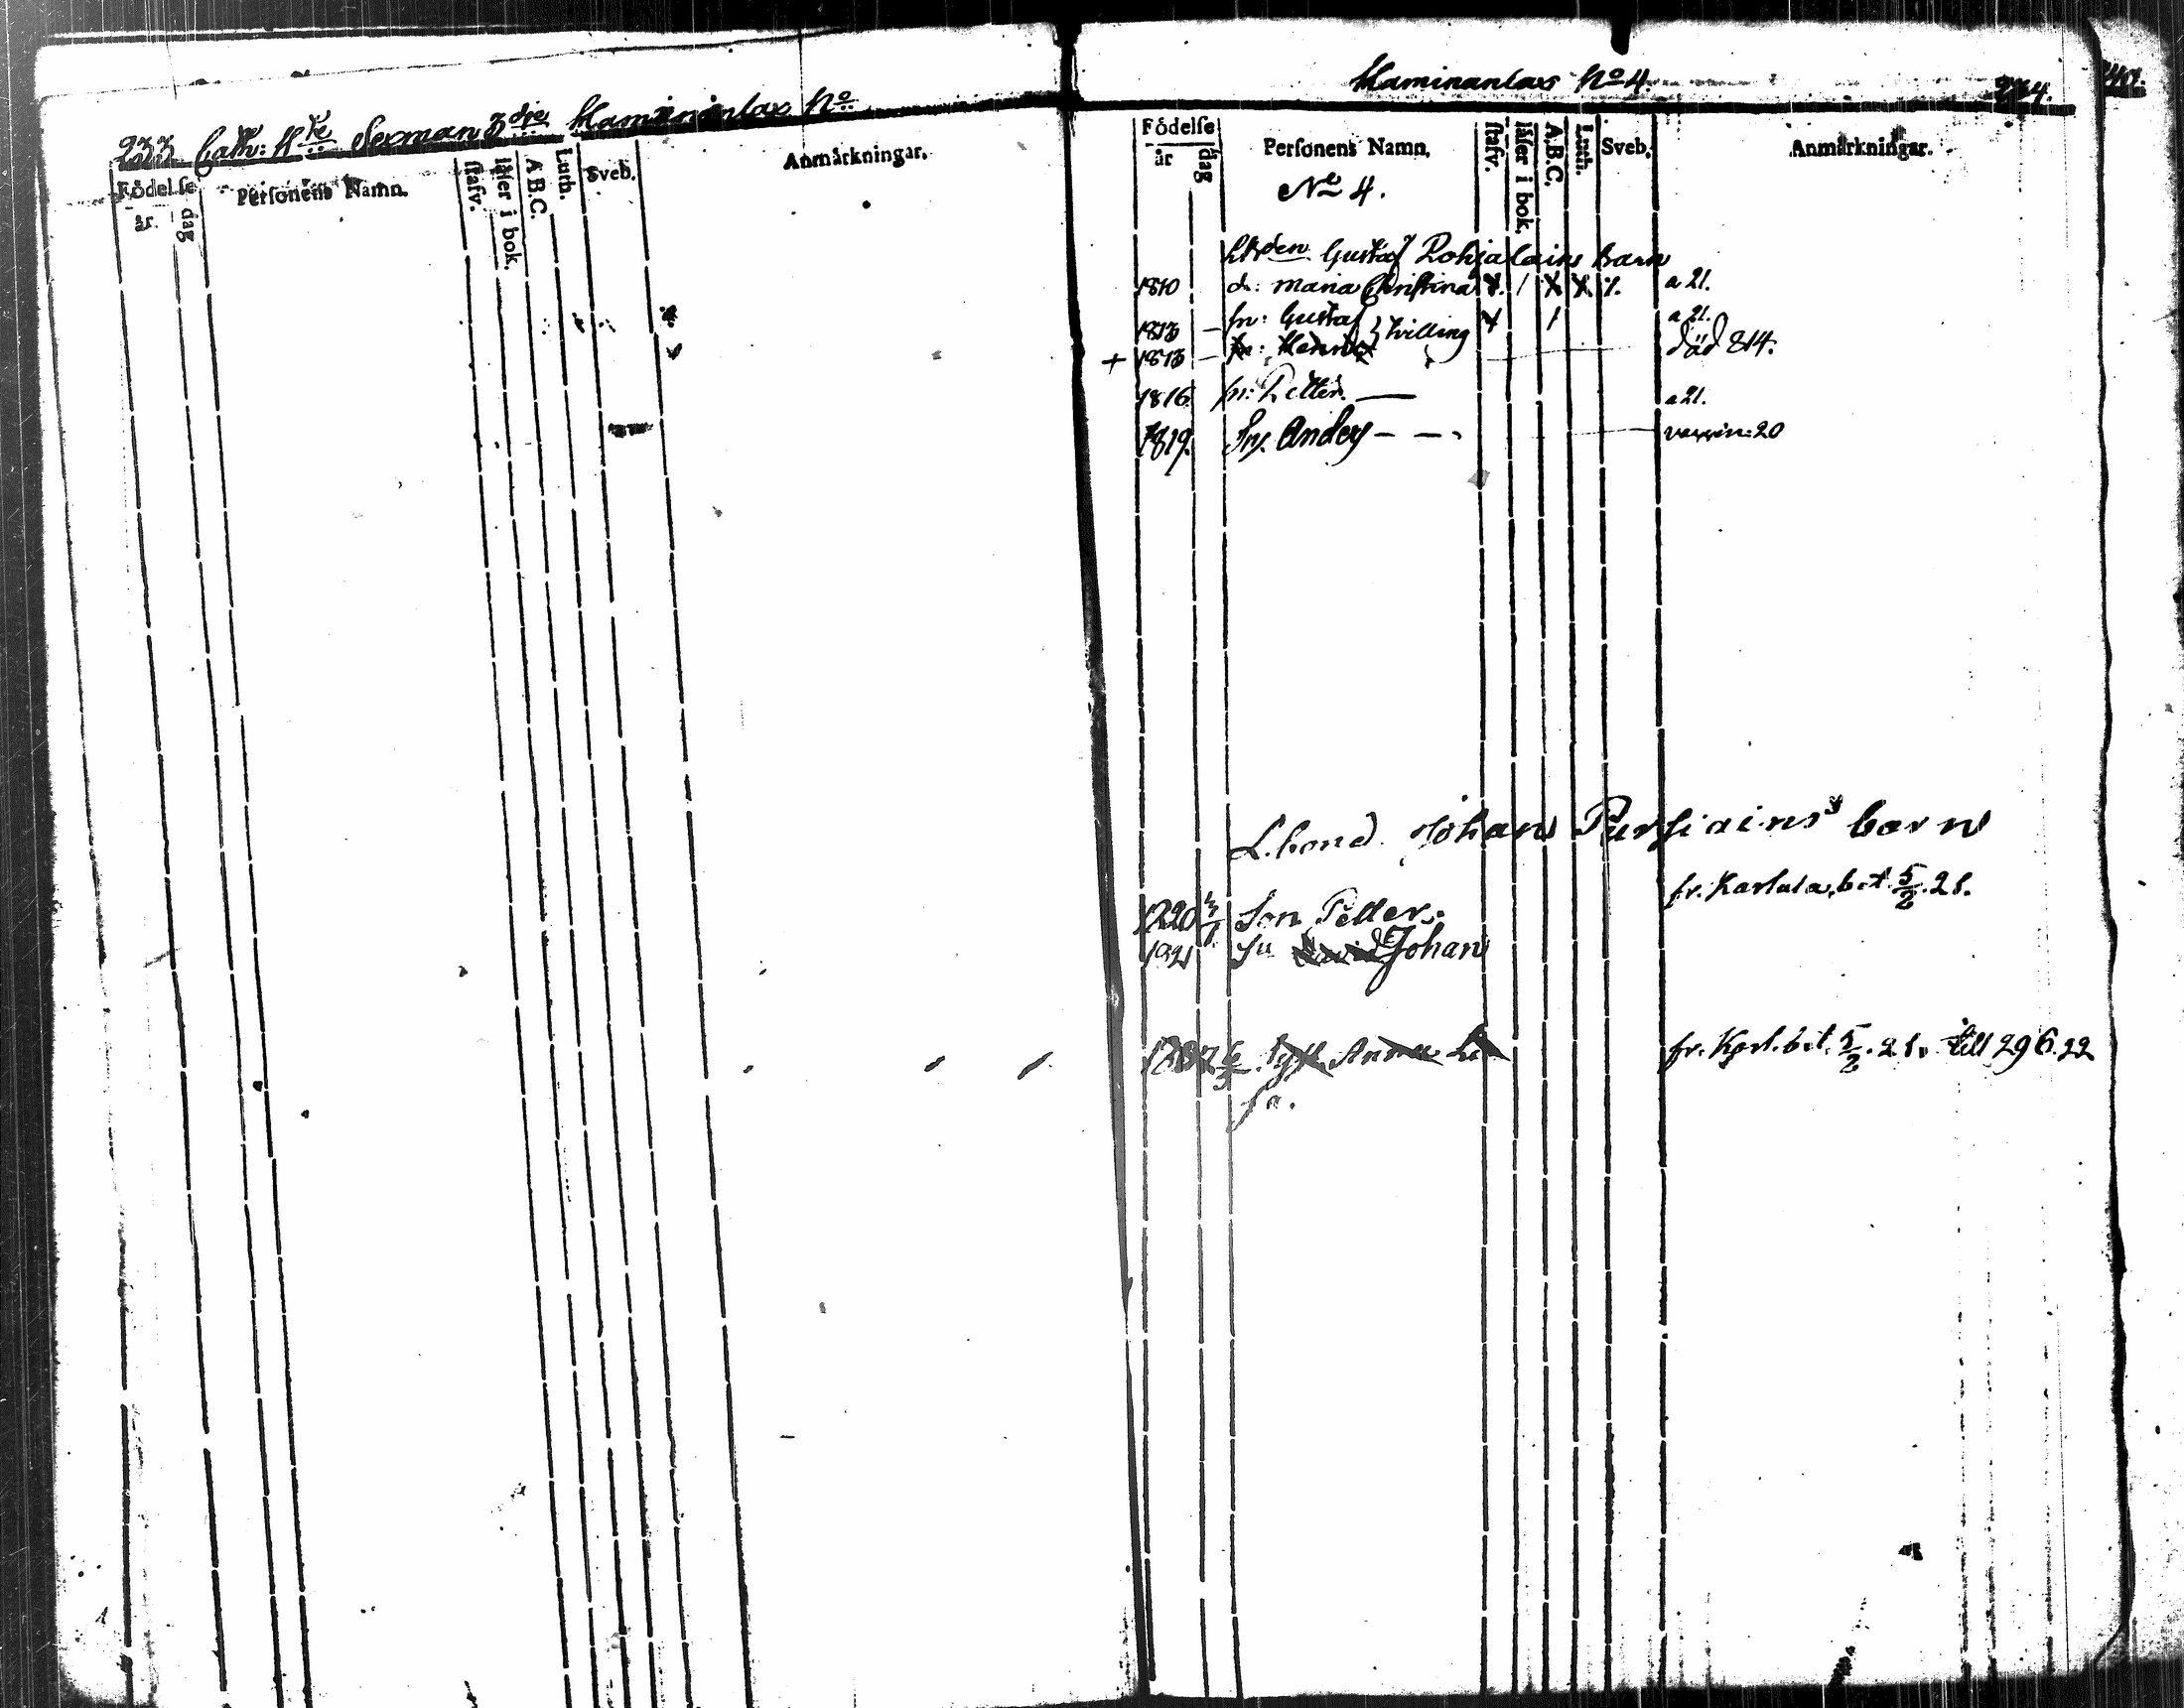 233 Cath: KTe Sexman 3die Haminanlax No
Födelse
år. dag
Personens Namn.
stafv.
läser i bok.
A.B.C.
Luth.
Sveb.
Anmärkningar.
Haminanlax No 4. 234.
Födelse
år dag
Personens Namn.
stafv.
läser i bok.
A.B.C.
Luth.
Sveb.
Anmärkningar.
No 4.
Gustaf Pohjalains barn
1810 dr: Maria Christina a 21.
1813 sn: Gustaf } tvilling a 21.
+ 1813 sn: Henric död 814.
1816 sn: Petter. a 21.
1819. Sn. Anders vaccin: 20
L. bond. Johan Pursiains barn
fr. Karlula, bet. 5/2. 21.
1820 Son Petter.
1821 Sn Johan
1807 Anna Li
sa.
fr. Karl. bet. 5/2. 21. till 296. 22